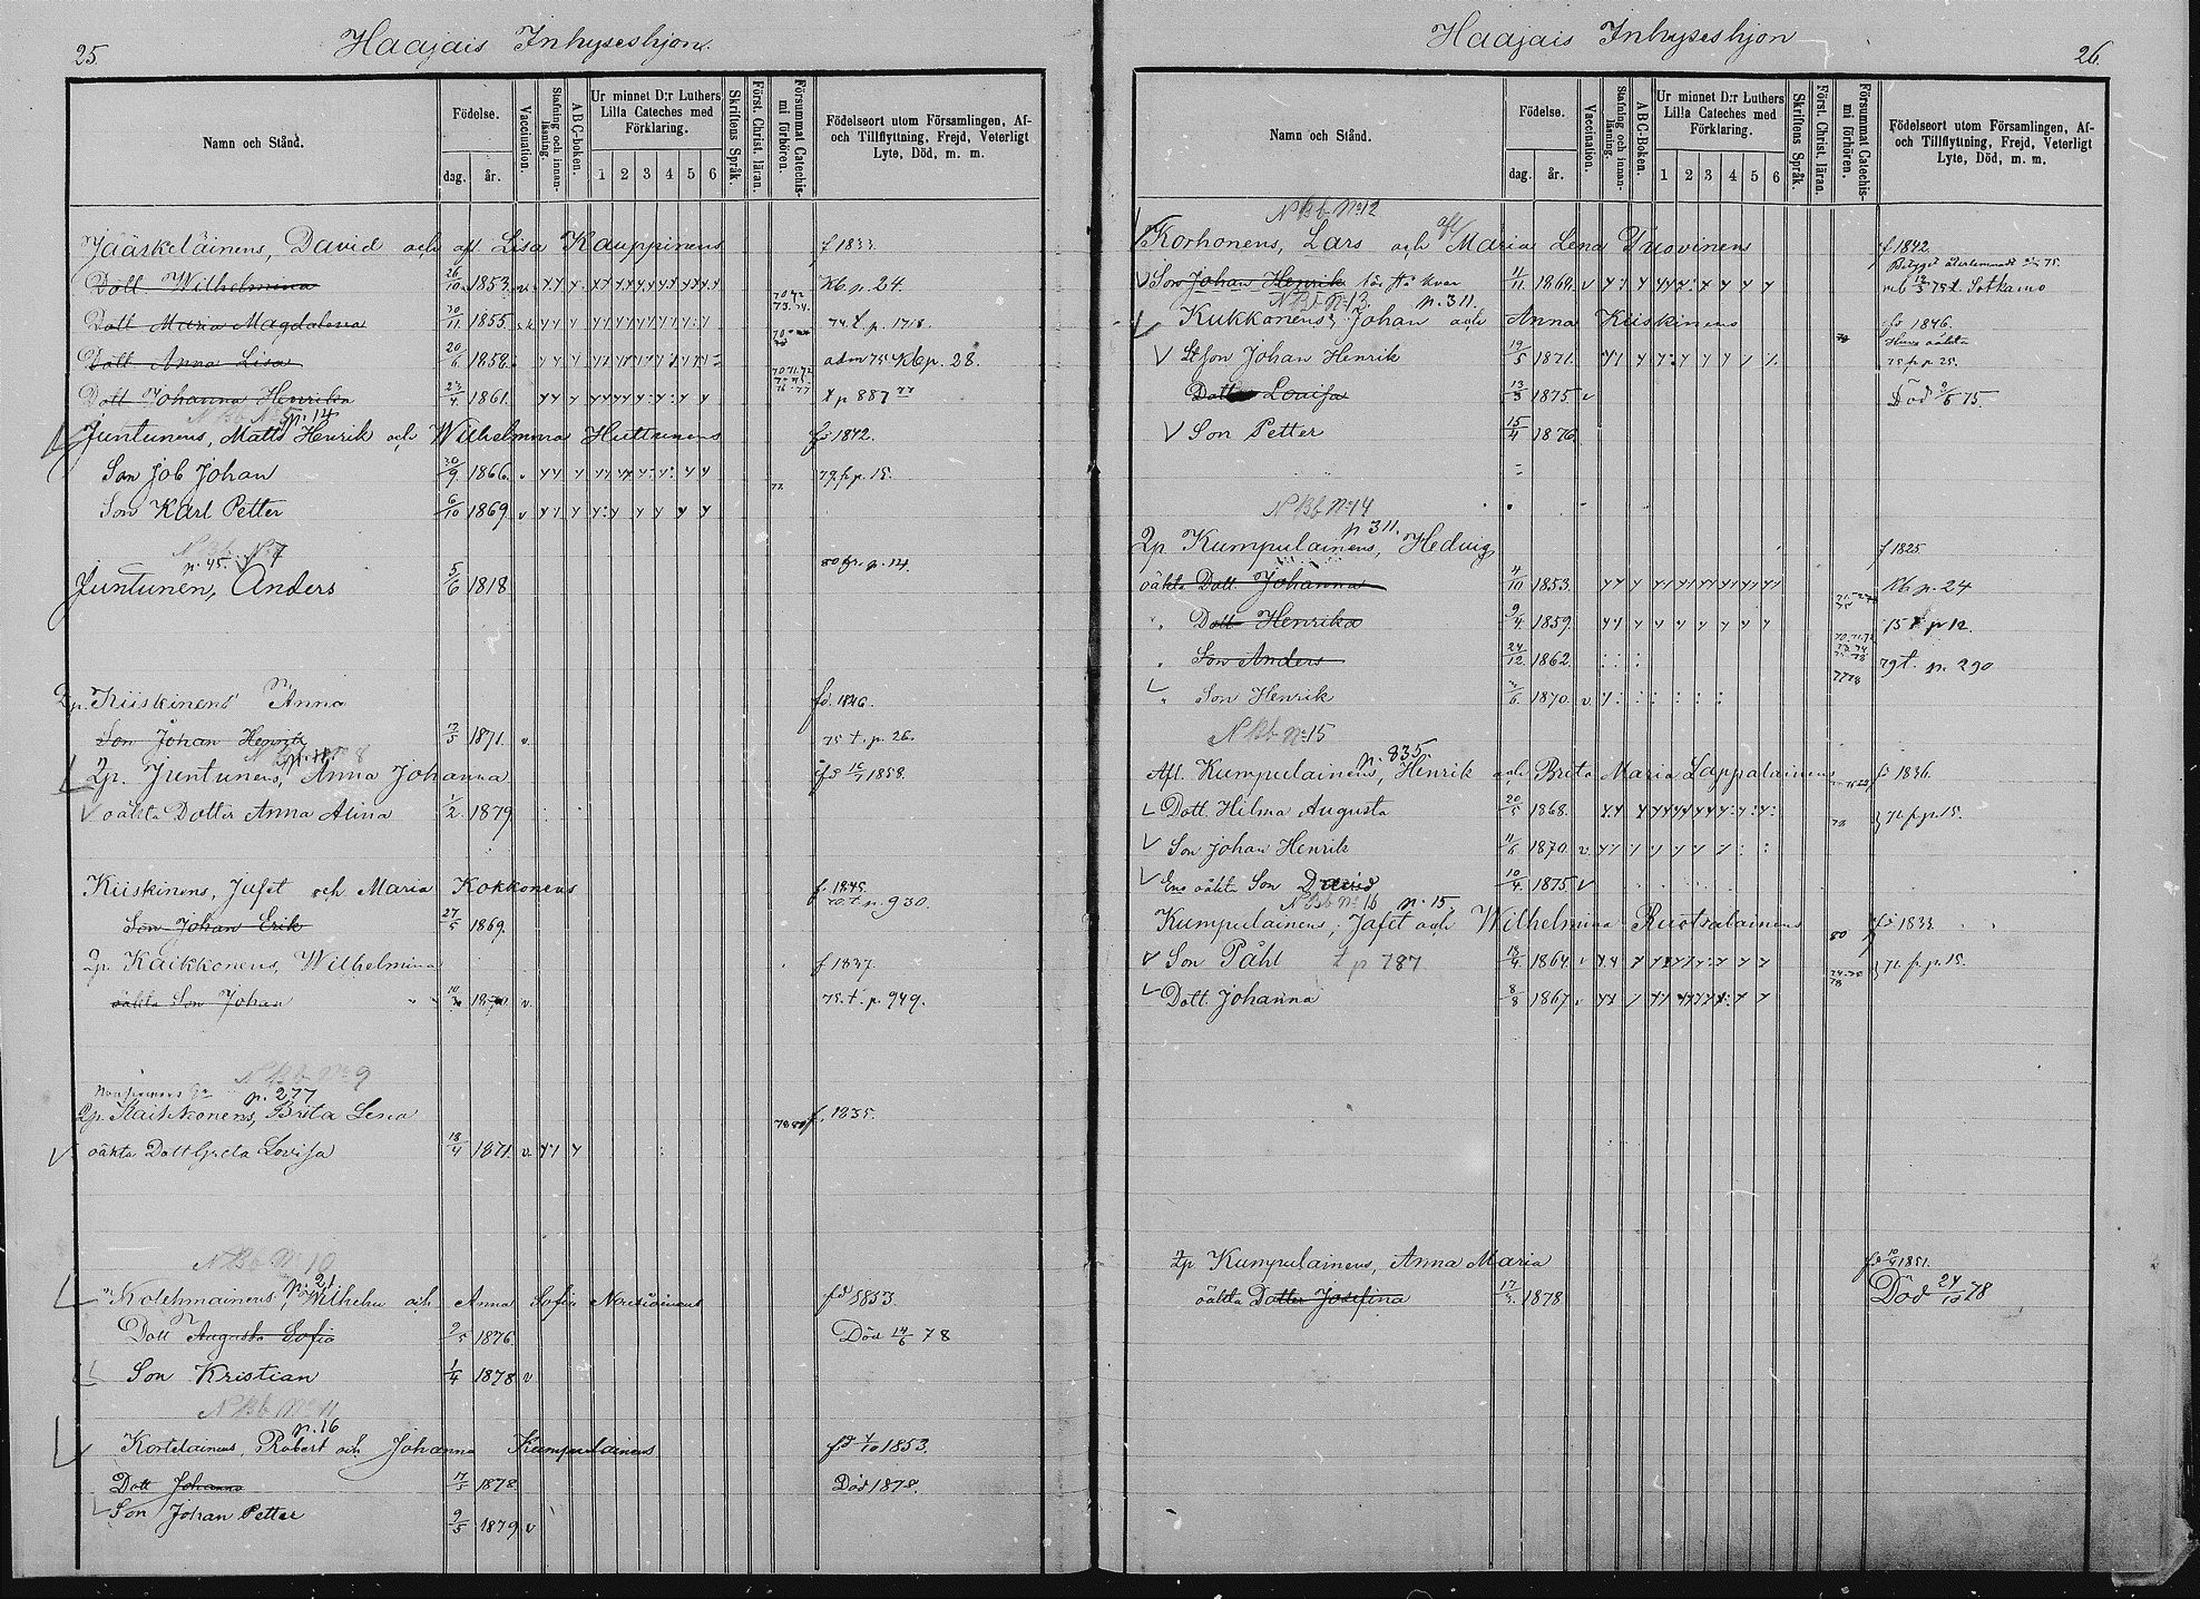 25.
Haajais Inhyseshjon.
Namn och Stånd.
Födelse.
dag.
år.
Vaccination.
Stafning och innanläsning.
ABC-boken.
Ur minnet D:r Luthers Lilla Cateches med Förklaring.
1 2 3 4 5 6
Skriftens Språk.
Först. Christ. läran.
Försummat Catechismi förhören.
Födelseort utom Församlingen, Af- och Tillflyttning, Frejd, Veterligt Lyte, Död, m. m.
Jääskeläinens, David och afl Lisa Kauppinens f 1833.
Dott Wilhelmina 26/10 1853. Kb p. 24.
Dott Maria Magdalena 30/11 1855. 74. t. p. 1718.
Dott Anna Lisa 20/6 1858. adm 75 Kb p. 28.
Dott Johanna Henrika 23/4 1861. t p 887 77
p. 14
Juntunens, Matts Henrik och Wilhelmina Huttunens fd 1842.
Son Job Johan 30/9 1866. 79. f. p. 15.
Son Karl Petter 6/10 1869. v
N Bb No 7
p. 45. 80 fr. p. 14.
Juntunen, Anders 5/6 1818
Qp. Kiiskinens Anna fd. 1846.
Son Johan Henrik 19/5 1871. v. 75 t. p. 26.
Qp. Juntunens, Anna Johanna 1858.
oäkta Dotter Anna Alina 1/2 1879
Kiiskinens, Jafet och Maria Kokkonens f. 1845.
t. p. 930.
Son Johan Erik 27/5 1869.
Qp. Kaikkonens, Wilhelmina f 1837.
oäkta Son Johan v. 75. t. p. 949.
N Bb No 9
p. 277
Qp. Kaikkonens, Brita Lena f. 1835.
oäkta Dott Greta Lovisa 18/4 1871. v.
N Bb No 10
p. 21
Kolehmainens, Wilhelm och Anna Sofia fd 1853.
Dott Augusta Sofia 9/5 1876 Död 14/6 78
Son Kristian 1/4 1878 v
N Bb No 11
p. 16
Kortelainens, Robert och Johanna Kumpulainens fd 1/10 1853.
Dott Johanna 17/5 1878 Död 1878.
Son Johan Petter 9/5 1879 v
Haajais Inhyseshjon
26.
Namn och Stånd.
Födelse.
dag.
år.
Vaccination.
Stafning och innanläsning.
ABC-Boken.
Ur minnet D:r Luthers Lilla Cateches med Förklaring.
1 2 3 4 5 6
Skriftens Språk.
Först. Christ. läran.
Försummat Catechismi förhören.
Födelseort utom Församlingen, Af- och Tillflyttning, Frejd, Veterligt Lyte, Död, m. m.
N Bb No 12
Korhonens, Lars och afl Maria Lena Tuovinens f 1842.
Betyget återlemnadt 75.
Son Johan Henrik får stå kvar 4/11 1868. v 75 t. Sotkamo
N Bb No 13. p. 311.
Kukkonens, Johan och Anna Kiiskinens fd 1846.
Hans oäkta
Son Johan Henrik 19/5 1871. 75 f. p. 25.
Dott Lovisa 13/3 1875 v Död 9/6 75.
Son Petter 15/4 1876
N Bb No 14
p 311.
Qp Kumpulainens, Hedvig f 1825
oäkta Dott. Johanna 4/10 1853. Kb p. 24
" Dott Henrika 9/4 1859. 75 t p 12.
" Son Anders 24/12 1862. 79 t. p. 290
" Son Henrik 1870. v.
N Bb No 15
p. 835
Afl. Kumpulainens, Henrik och Brita Maria Lappalainens fd 1836.
Dott. Hilma Augusta 20/5 1868. 71. f. p. 15.
Son Johan Henrik 1870. v.
Ens oäkta Son David 10/4 1875 v
N Bb No 16 p. 15
Kumpulainens, Jafet och Wilhelmina Ruotsalainens 80 fd 1833
Son Påhl t p 787 1864. 71. f. p. 15.
Dott. Johanna 8/8 1867.
Qp Kumpulainens, Anna Maria 1851.
oäkta Dotter Josefina 1878 Död 24/12 78